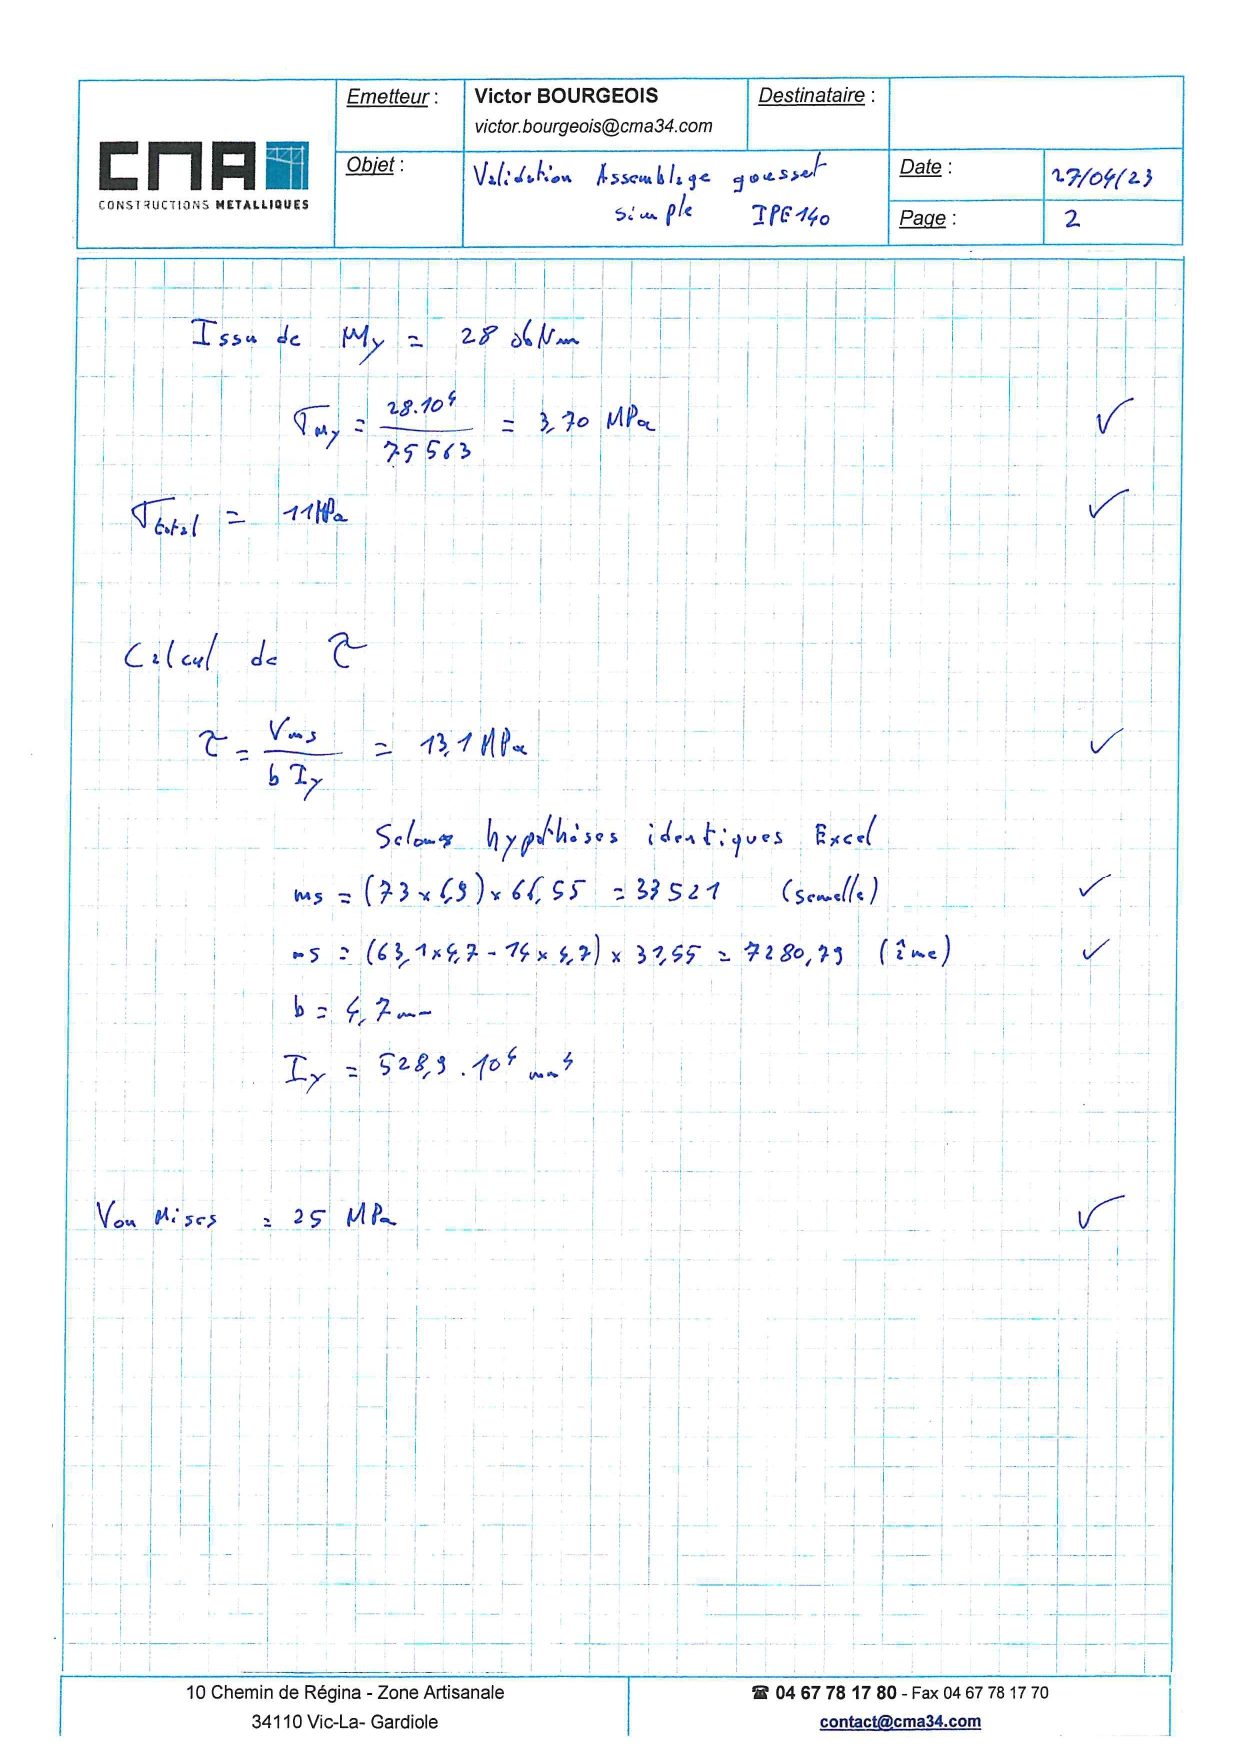 Emetteur :
Victor BOURGEOIS
victor.bourgeois@cma34.com
Destinataire :
CMA
CONSTRUCTIONS METALLIQUES
Objet :
Validation Assemblage gousset
simple IPE140
Date :
27/04/23
Page :
2
Issu de My = 28 daNm
σMy = 28.10⁴ / 75563 = 3,70 MPa ✓
σtotal = 11MPa ✓
Calcul de τ
τ = Vms / b Iy = 13,1 MPa ✓
Selon hypothèses identiques Excel
ms = (73 x 6,9) x 66,55 = 33521 (semelle) ✓
ms = (63,1x4,7 - 14 x 4,7) x 31,55 = 7280,79 (âme) ✓
b = 4,7mm
Iy = 528,9 . 10⁴ mm⁴
Von Mises = 25 MPa ✓
10 Chemin de Régina - Zone Artisanale
34110 Vic-La- Gardiole
☎ 04 67 78 17 80 - Fax 04 67 78 17 70
contact@cma34.com